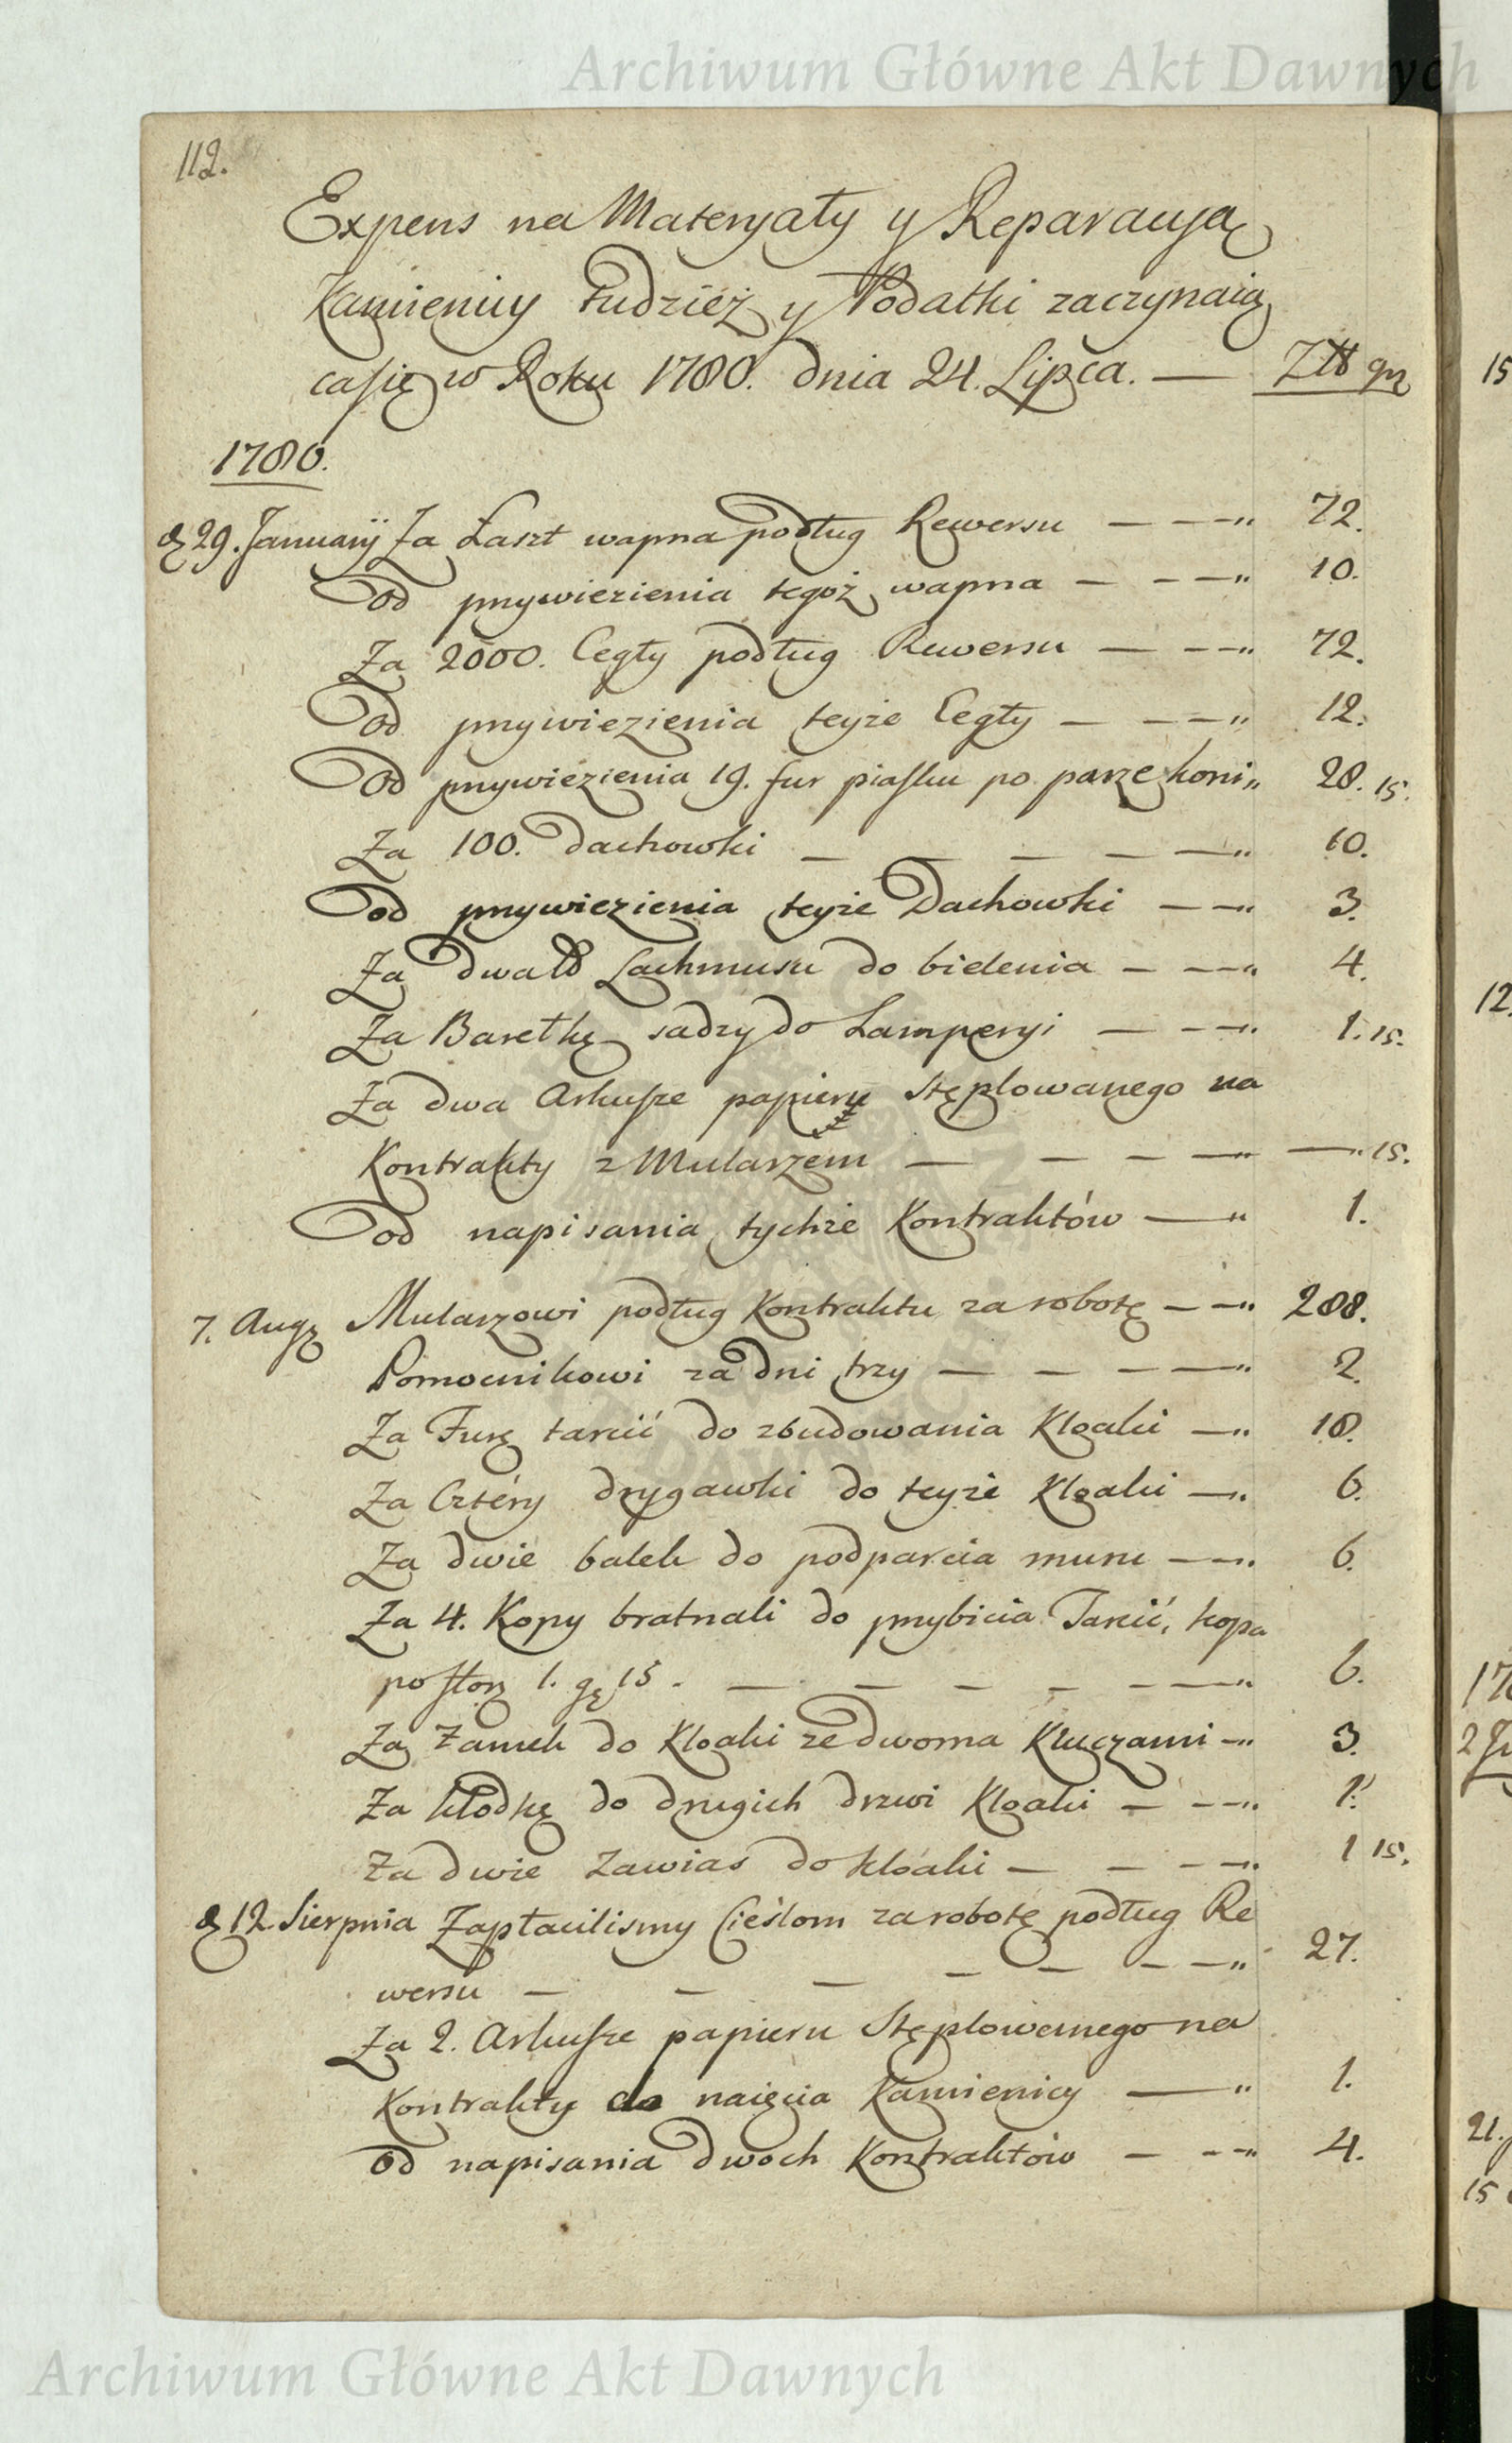 Archiwum Główne Akt Dawnych
112.
Expens na Materyały y Reparacyą
Kamienicy tudzież y Podatki zaczynaią
casię w Roku 1780. dnia 24. Lipca. — Złł gr
1780.
d 29. Januarij Za Łaszt wapna podług Rewersu — — —„ 72.
Od przywiezienia tegoż wapna — — —„ 10.
Za 2000. Cegły podług Rewersu — — —„ 72.
Od przywiezienia teyże Cegły — — —„ 12.
Od przywiezienia 19. fur piasku po parze koni„ 28. 15.
Za 100. Dachowki — — — — —„ 10.
Od przywiezienia teyże Dachowki — —„ 3.
Za dwa ℔ Lachmusu do bielenia — — —„ 4.
Za Baretkę sadzy do Lamperyi — — —„ 1. 15.
Za dwa Arkusze papieru stęplowanego na
Kontrakty z Mularzem — — — —„ —„ 15.
Od napisania tychże Kontraktów —„ 1.
7. Aug Mularzowi podług Kontraktu za robotę — —„ 288.
Pomocnikowi za dni trzy — — — —„ 2.
Za Furę tarcić do zbudowania Kloaki —„ 18.
Za Cztéry drygawki do teyże Kloaki —„ 6.
Za dwie balek do podparcia muru — —„ 6.
Za 4. Kopy bratnali do przybicia Tarcić, kopa
po złoty 1. gr 15. — — — — — —„ 6.
Za Zamek do Kloaki ze dwoma Kluczami —„ 3.
Za kłodkę do drugich drzwi Kloaki — — —„ 1.
Za dwie zawias do kloaki — — — —„ 1 15.
d 12 Sierpnia Zapłacilismy Cieślom za robotę podług Re
wersu — — — — — — —„ 27.
Za 2. Arkusze papieru Stęplowanego na
Kontrakty do naięcia Kamienicy —„ 1.
Od napisania dwoch Kontraktów — — —„ 4.
15
12.
2
21.
15
Archiwum Główne Akt Dawnych